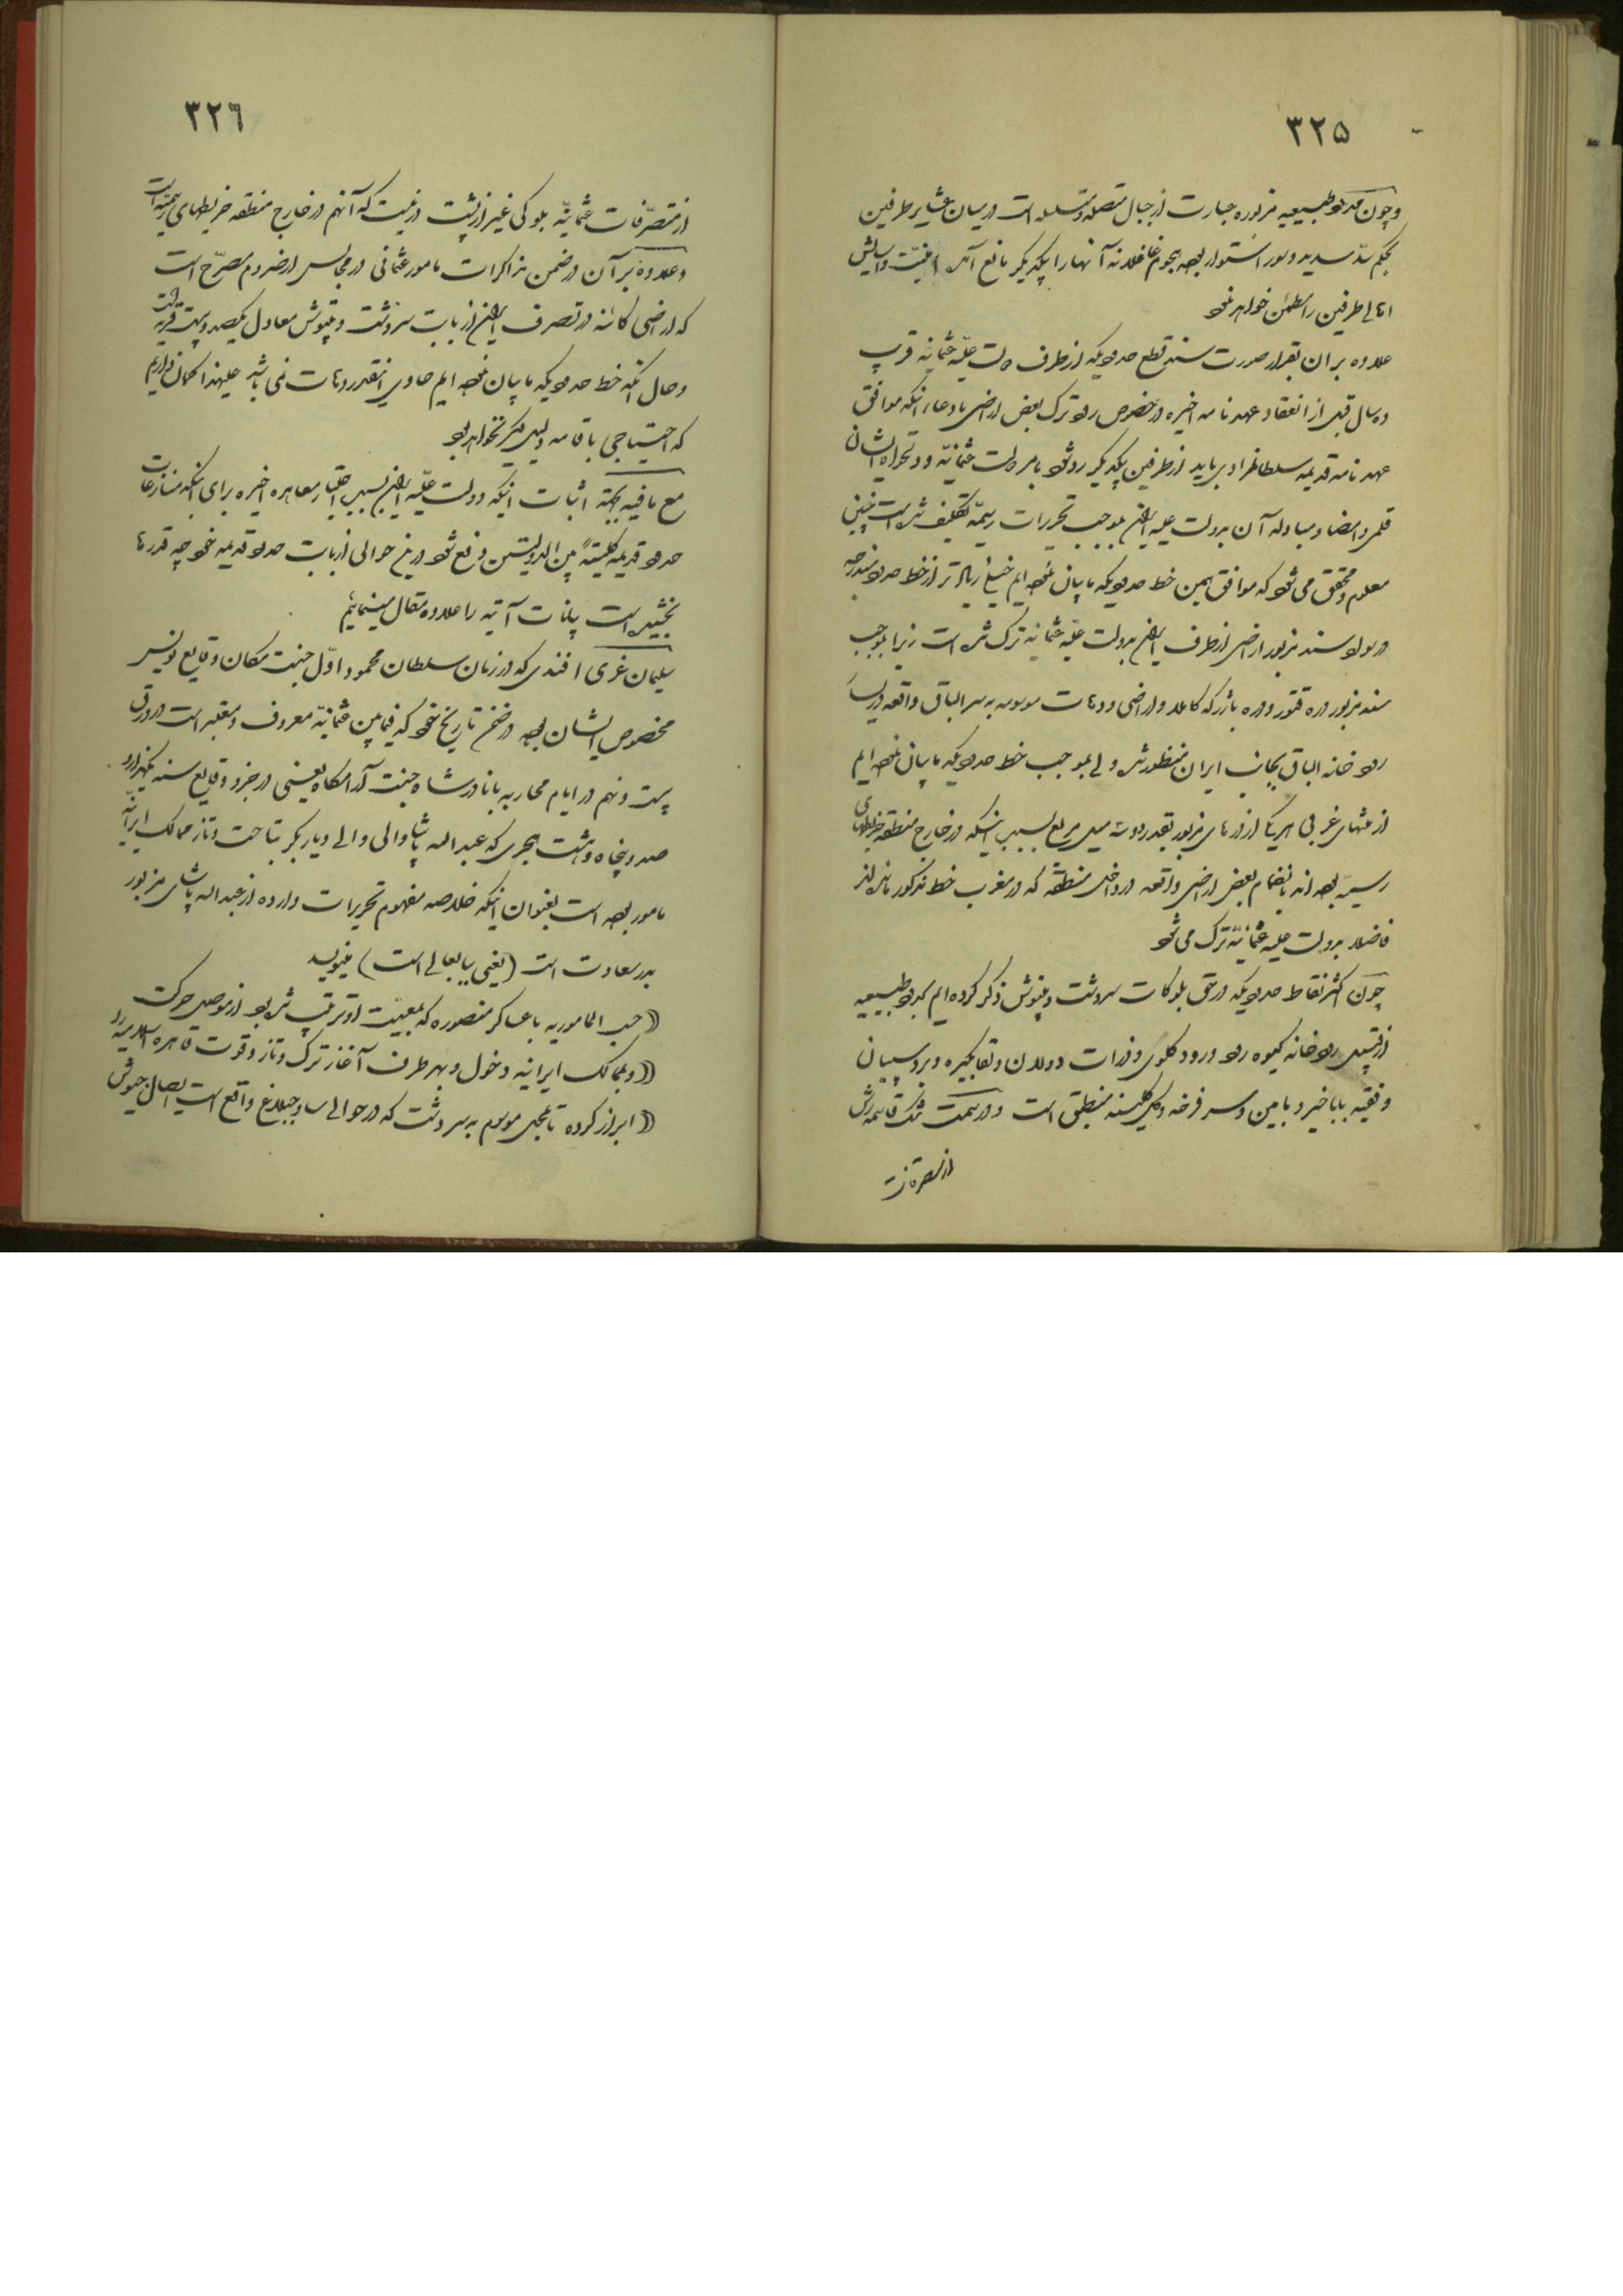 ۳۲۵
و چون حدود طبیعیه مزبوره عبارت از جبال متصله و متسلسله است در میان عشایر طرفین
بحکم سدّ سدید و سور استوار بوده هجوم غافلانهٔ آنها را بیکدیگر مانع آمده امنیّت و آسایش
اهالی طرفین را مطمئن خواهد نمود
علاوه بر آن بقرار صورت سند قطع حدودیکه از طرف دولت علیّهٔ عثمانیّه قریب
ده سال قبل از انعقاد عهدنامه اخیره در خصوص رد و ترک بعض اراضی بادعای اینکه موافق
عهدنامه قدیمه سلطانمرادی باید از طرفین بیکدیگر رد شود بامر دولت عثمانیّه و دلخواه ایشان
قلمی و امضا و مبادله آن بدولت علیه ایران بموجب تحریرات رسمیّه تکلیف شده است چنین
معلوم و محقق می شود که موافق همین خط حدودیکه ما بیان نموده ایم خیلی زیادتر از خط حدود مندرجه
در سواد سند مزبور اراضی از طرف ایران بدولت علیّه عثمانیه ترک شده است زیرا بموجب
سند مزبور دره قتور و دره بازرگه کاملا و اراضی و دهات موسومه به سر الباق واقعه در
رودخانه الباق بجانب ایران منظور شده ولی بموجب خط حدودیکه ما بیان نموده ایم
از منتهای غربی هر یک از دره های مزبور بقدر دویست میل مربع بسبب اینکه در خارج منطقه خریطهای
رسمیّه بوده اند بانضمام بعض اراضی واقعه در داخل منطقه که در مغرب خط مذکور مانده اند
فاضلا بدولت علیه عثمانیّه ترک می شود
چون اکثر نقاط حدودیکه در حق بلوکات سردشت و بیتوش ذکر کرده ایم بحدود طبیعیه
از قبیل رودخانه کیوه رود و رود کلوی و ذرات دولان و بردسپیان
و فقیه باباخیر و بامین و سر فرخه و کلی کلیسنه منطبق است و در سمت قاسمه رش
از متصرفات
۳۲٦
از متصرّفات عثمانیّه بلوکی غیر از پشت در نیست که آنهم در خارج منطقه خریطهای رسمیّه است
و علاوهٔ بر آن در ضمن مذاکرات مامور عثمانی در مجالس ارضروم مصرّح است
که اراضی کائنه در تصرف ایران از بابت سردشت و بیتوش معادل یکصد و بیست قریه است
و حال آنکه خط حدودیکه ما بیان نموده ایم حاوی اینقدر دهات نمی باشد علیهذا گمان داریم
که احتیاجی باقامه دلیل دیگر نخواهد بود
مع ما فیه بجهة اثبات اینکه دولت علیّه ایران بسبب اختیار معاهده اخیره برای اینکه منازعات
حدود قدیمه کلیتهً بین الدولتین رفع شود در این حوالی از بابت حدود قدیمه خود چه قدرها
بخشیده است بیانات آتیه را علاوه مقال مینمائیم
سلیمان عزی افندی که در زمان سلطان محمود اوّل جنت مکان وقایع نویس
مخصوص ایشان بوده در ضخم تاریخ خود که فیمابین عثمانیّه معروف و معتبر است در ورق
بیست و نهم در ایام محاربه با نادر شاه جنت آرامگاه یعنی در جزو وقایع سنه یکهزار و
صد و پنجاه و هشت هجری که عبدالله پاشا والی والی دیاربکر بتاخت و تاز ممالک ایرانیّه
مامور بوده است بعنوان اینکه خلاصه مفهوم تحریرات وارده از عبدالله پاشای مزبور
بدر سعادت است (یعنی ببابعالی است) مینویسد
(( حسب المامورریه با عساکر منصوره که بمعیّت او ترتیب شده بود از موصل حرکت
(( و بممالک ایرانیه دخول و بهر طرف آغاز ترک و تاز و قوت قاهره اسلامیه را
(( ابراز کرده تا بمحل موسوم به سردشت که در حوالی ساوجبلاغ واقع است ایصال جیوش